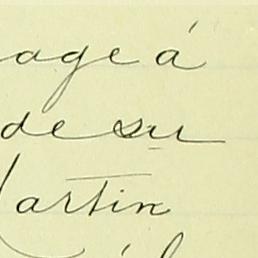 age á
de su
Martin